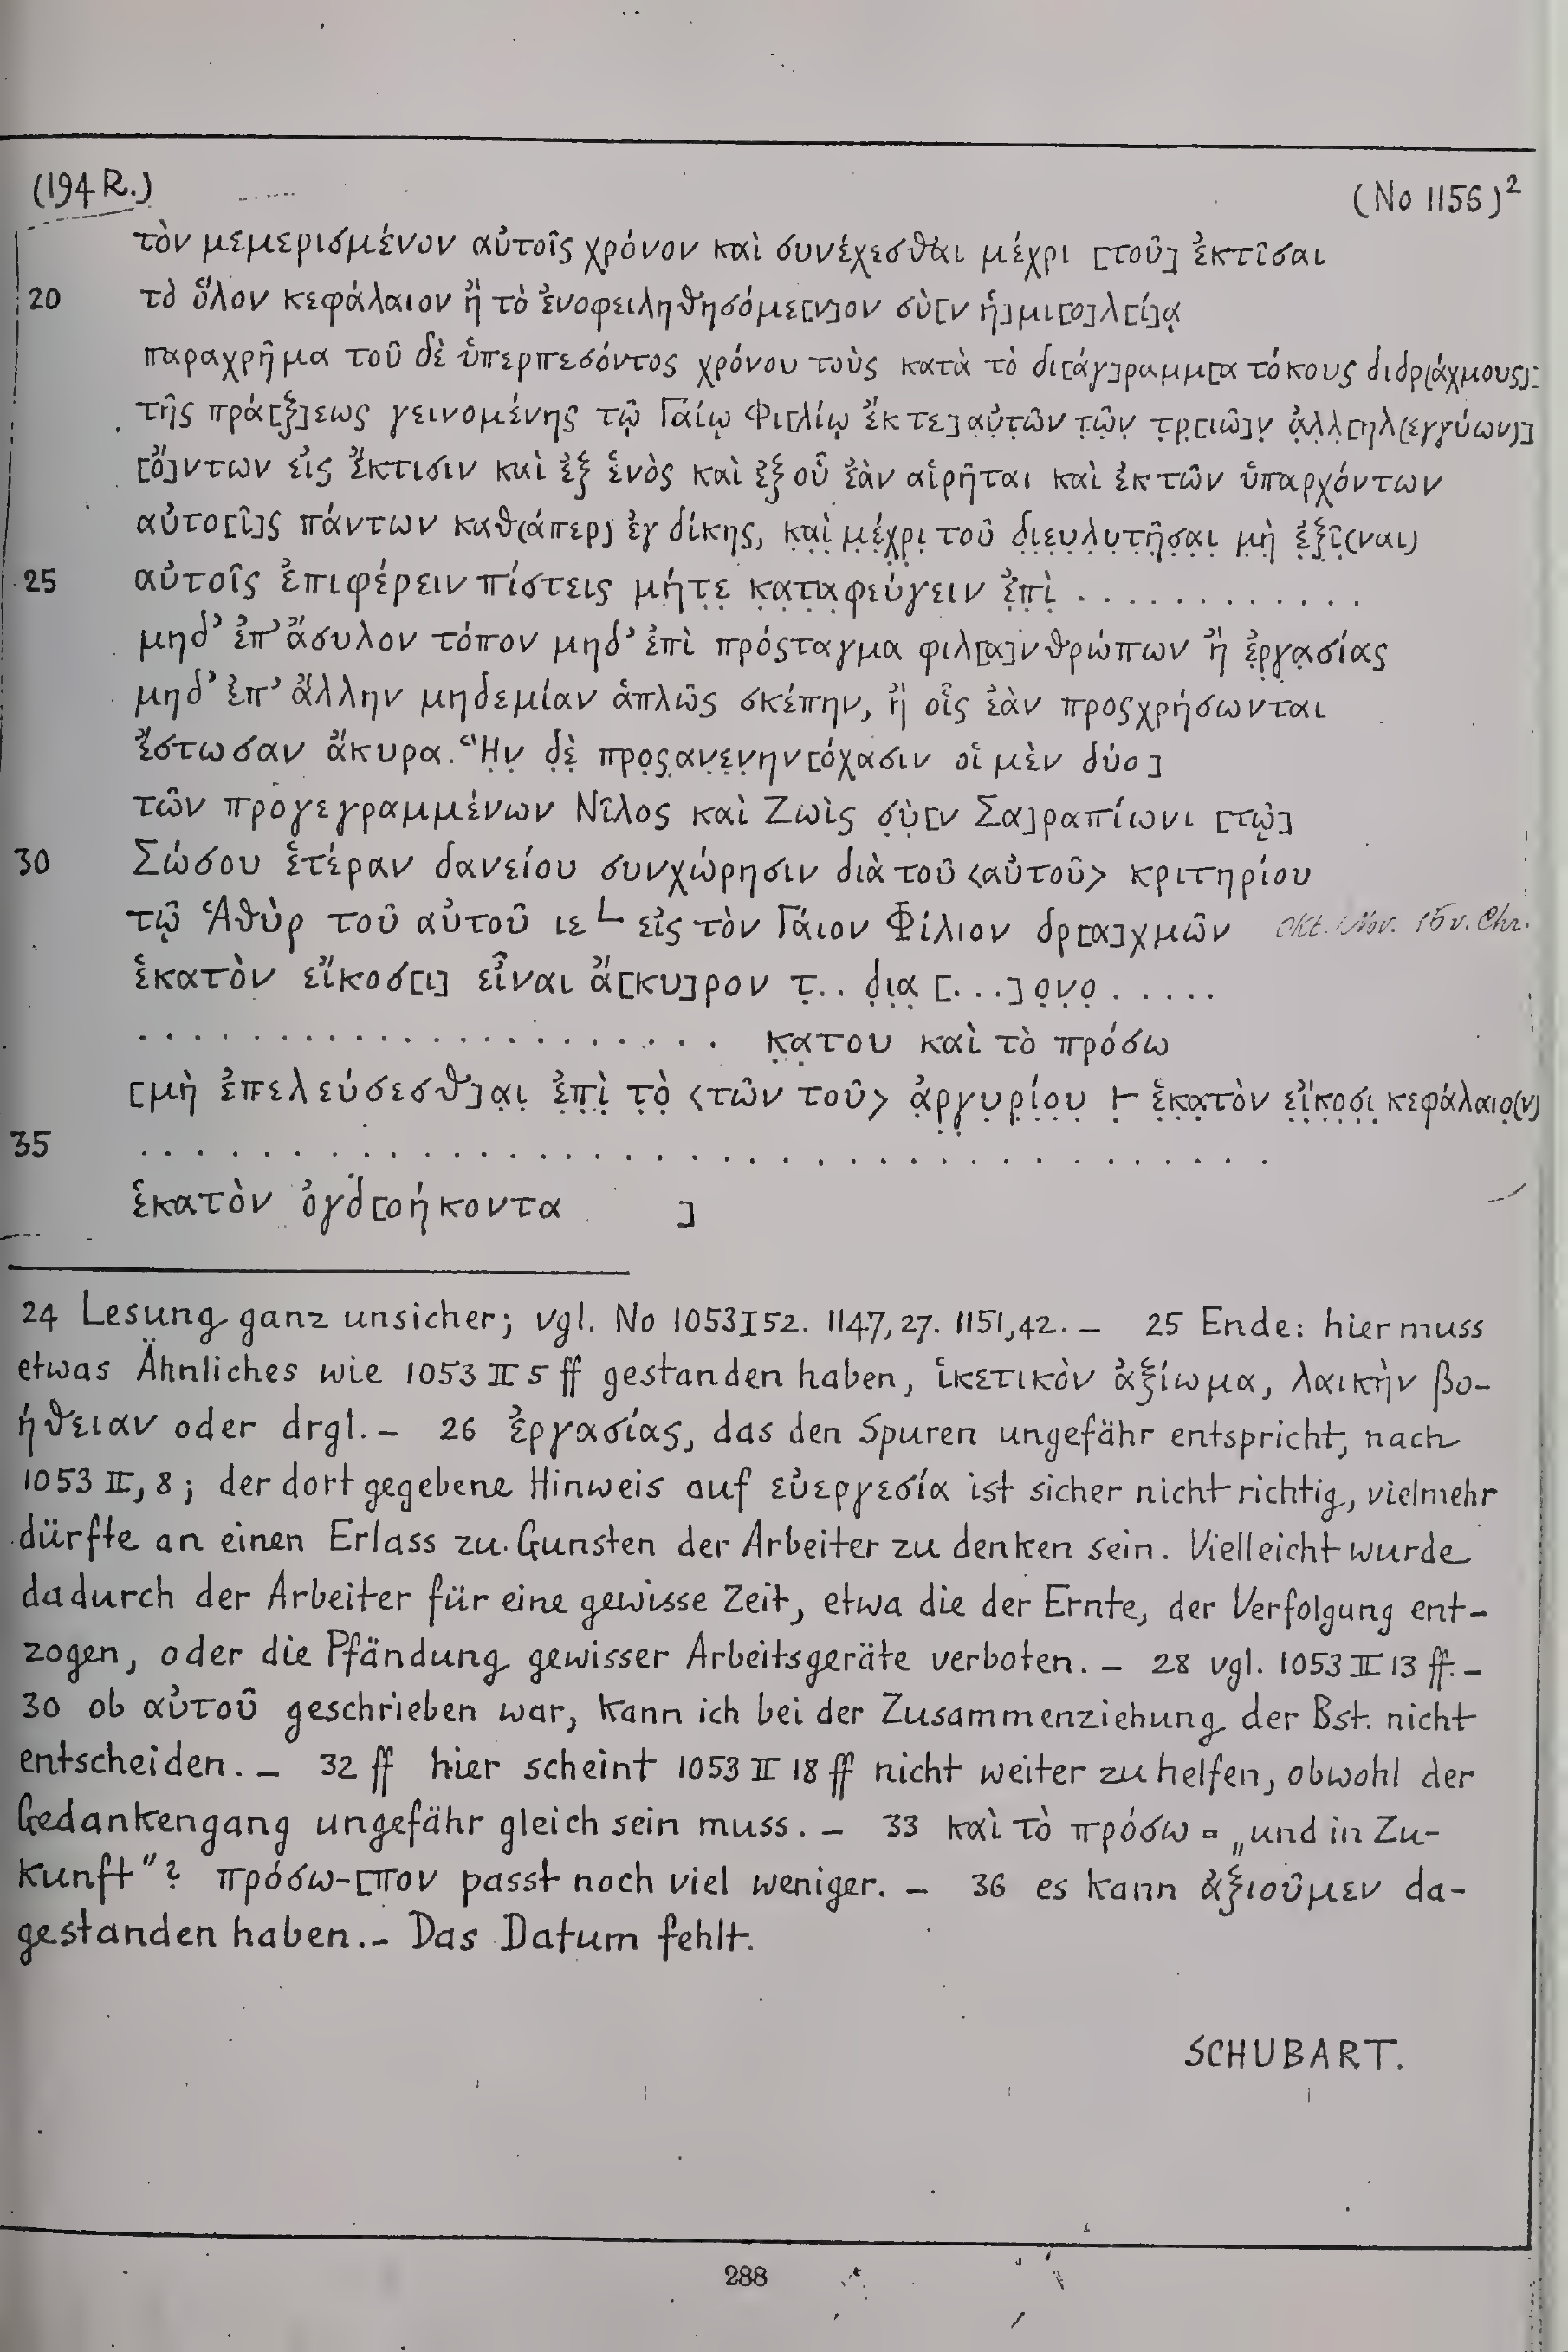 (194 R.)
(No 1156)²
τὸν μεμερισμένον αὐτοῖς χρόνον καὶ συνέχεσθαι μέχρι [τοῦ] ἐκτῖσαι
20 τὸ ὅλον κεφάλαιον ἢ τὸ ἐνοφειληθησόμε[ν]ον σὺ[ν ἡ]μι[ο]λ[ί]ᾳ
παραχρῆμα τοῦ δὲ ὑπερπεσόντος χρόνου τοὺς κατὰ τὸ δι[άγ]ραμμ[α τόκους διδρ(άχμους)]:
τῆς πρά[ξ]εως γεινομένης τῷ Γαίῳ Φι[λίῳ ἔκ τε] ạὐτ̣ῶν τ̣ῶ̣ν̣ τ̣ρ̣[ιῶ]ν̣ ἀ̣λ̣λ̣[ηλ(εγγύων)]
[ὄ]ντων εἰς ἔκτισιν καὶ ἐξ ἑνὸς καὶ ἐξ οὗ ἐὰν αἱρῆται καὶ ἐκ τῶν ὑπαρχόντων
αὐτο[ῖ]ς πάντων καθ(άπερ) ἐγ δίκης, κ̣α̣ὶ̣ μ̣έ̣χ̣ρ̣ι̣ τοῦ δ̣ι̣ε̣υ̣λ̣υ̣τ̣ῆ̣σ̣α̣ι̣ μ̣ὴ̣ ἐ̣ξ̣ῖ̣(ναι)
25 αὐτοῖς ἐπιφέρειν πίστεις μήτ̣ε̣ κ̣α̣τ̣α̣φεύγειν ἐ̣π̣ὶ̣ . . . . . . . . . . . .
μηδ’ ἐπ’ ἄσυλον τόπον μηδ’ ἐπὶ πρόςταγμα φιλ[α]νθρώπων ἢ ἐ̣ρ̣γ̣α̣σίας
μηδ’ ἐπ’ ἄλλην μηδεμίαν ἁπλῶς σκέπην, ἢ οἷς ἐὰν προςχρήσωνται
ἔστωσαν ἄκυρα. Ἣ̣ν̣ δ̣ὲ̣ προ̣ς̣α̣ν̣ε̣ν̣ην[όχασιν οἱ μὲν δύο]
τῶν προγεγραμμένων Νῖλος καὶ Ζωὶς σ̣ὺ̣[ν Σα]ραπίωνι [τῷ]
30 Σώσου ἑτέραν δανείου συνχώρησιν διὰ τοῦ <αὐτοῦ> κριτηρίου
τῷ Ἁθὺρ τοῦ αὐτοῦ ιε L εἰς τὸν Γάιον Φίλιον δρ[α]χμῶν Okt. Nov. 15 v. Chr.
ἑκατὸν εἴκοσ[ι] εἶναι ἄ[κυ]ρον τ̣.. δ̣ι̣α̣ [...]ο̣ν̣ο̣ .....
. . . . . . . . . . . . . . . . . . . . . κ̣α̣του καὶ τὸ πρόσω
[μὴ ἐπελεύσεσθ]α̣ι̣ ἐ̣π̣ὶ̣ τ̣ὸ̣ <τῶν τοῦ> ἀ̣ρ̣γ̣υ̣ρ̣ί̣ο̣υ̣ ⊢ ἑ̣κ̣α̣τὸν ε̣ἴ̣κ̣ο̣σ̣ι̣ κεφάλαιο̣(ν)
35 . . . . . . . . . . . . . . . . . . . . . . . . . . . . . .
ἑκατὸν ὀγδ[οήκοντα ]
24 Lesung ganz unsicher; vgl. No 1053 I 52. 1147,27. 1151,42. – 25 Ende: hier muss
etwas Ähnliches wie 1053 II 5 ff gestanden haben, ἱκετικὸν ἀξίωμα, λαικὴν βο-
ήθειαν oder drgl. – 26 ἐργασίας, das den Spuren ungefähr entspricht, nach
1053 II, 8; der dort gegebene Hinweis auf εὐεργεσία ist sicher nicht richtig, vielmehr
dürfte an einen Erlass zu Gunsten der Arbeiter zu denken sein. Vielleicht wurde
dadurch der Arbeiter für eine gewisse Zeit, etwa die der Ernte, der Verfolgung ent-
zogen, oder die Pfändung gewisser Arbeitsgeräte verboten. – 28 vgl. 1053 II 13 ff. –
30 ob αὐτοῦ geschrieben war, kann ich bei der Zusammenziehung der Bst. nicht
entscheiden. – 32 ff hier scheint 1053 II 18 ff nicht weiter zu helfen, obwohl der
Gedankengang ungefähr gleich sein muss. – 33 καὶ τὸ πρόσω = „und in Zu-
kunft"? πρόσω-[πον passt noch viel weniger. – 36 es kann ἀξιοῦμεν da-
gestanden haben. – Das Datum fehlt.
SCHUBART.
288